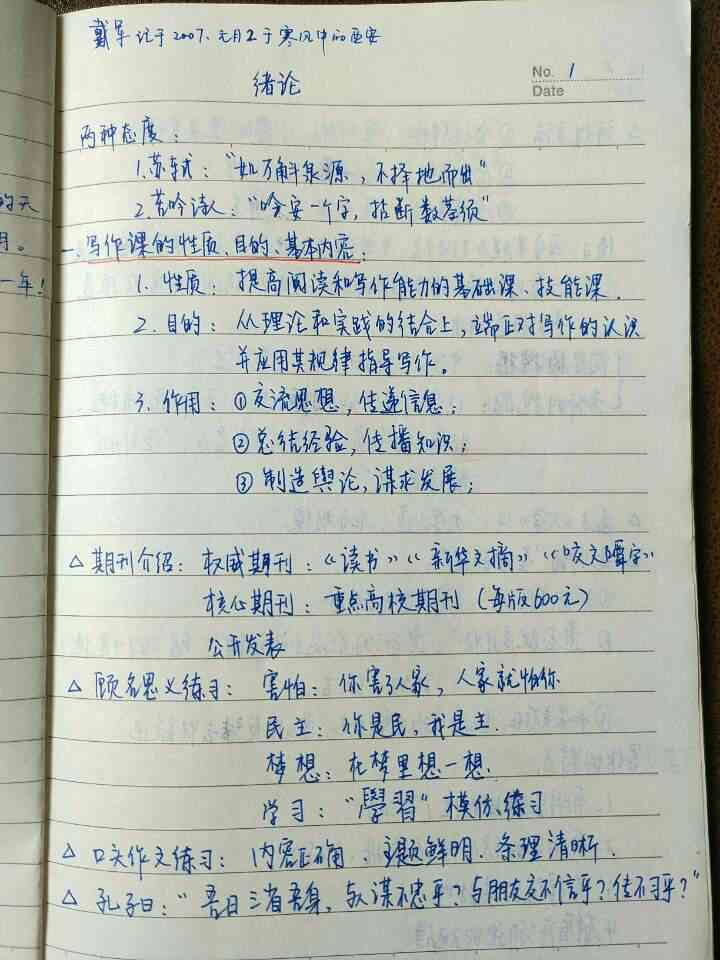 戴军 记于2007.元月2于寒风中的西安
No. 1
Date
绪论
两种态度:
1.苏轼:"如万斛泉源,不择地而出"
2.苦吟诗人:"吟安一个字,拈断数茎须"
的天
一.写作课的性质、目的、基本内容:
月。
1. 性质: 提高阅读和写作能力的基础课、技能课.
一年!
2. 目的: 从理论和实践的结合上,端正对写作的认识
并应用其规律指导写作。
3. 作用: ①交流思想,传递信息;
②总结经验,传播知识;
③制造舆论,谋求发展;
△ 期刊介绍: 权威期刊:《读书》《新华文摘》《咬文嚼字》
核心期刊: 重点高校期刊(每版600元)
公开发表
△ 顾名思义练习: 害怕: 你害了人家,人家就怕你
民主: 你是民,我是主.
梦想: 在梦里想一想.
学习: "學習"模仿练习
△ 口头作文练习: 内容正确、主题鲜明、条理清晰.
△ 孔子曰:"吾日三省吾身,与人谋不忠乎?与朋友交不信乎?传不习乎?"